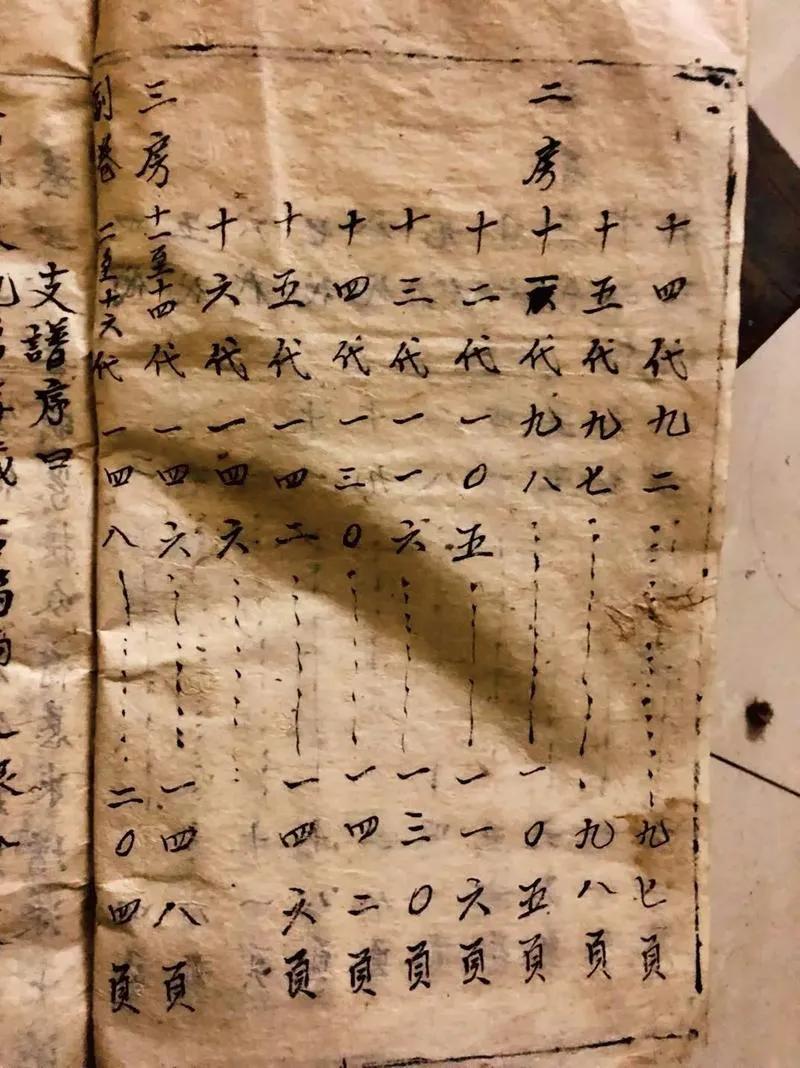 十四代九二……九七頁
十五代九七……九八頁
二房十一代九八……一0五頁
十二代一0五……一一六頁
十三代一一六……一三0頁
十四代一三0……一四二頁
十五代一四二……一四六頁
十六代一四六……
三房十一至十四代一四六……一四八頁
卷二至十六代一四八……二0四頁
支譜序